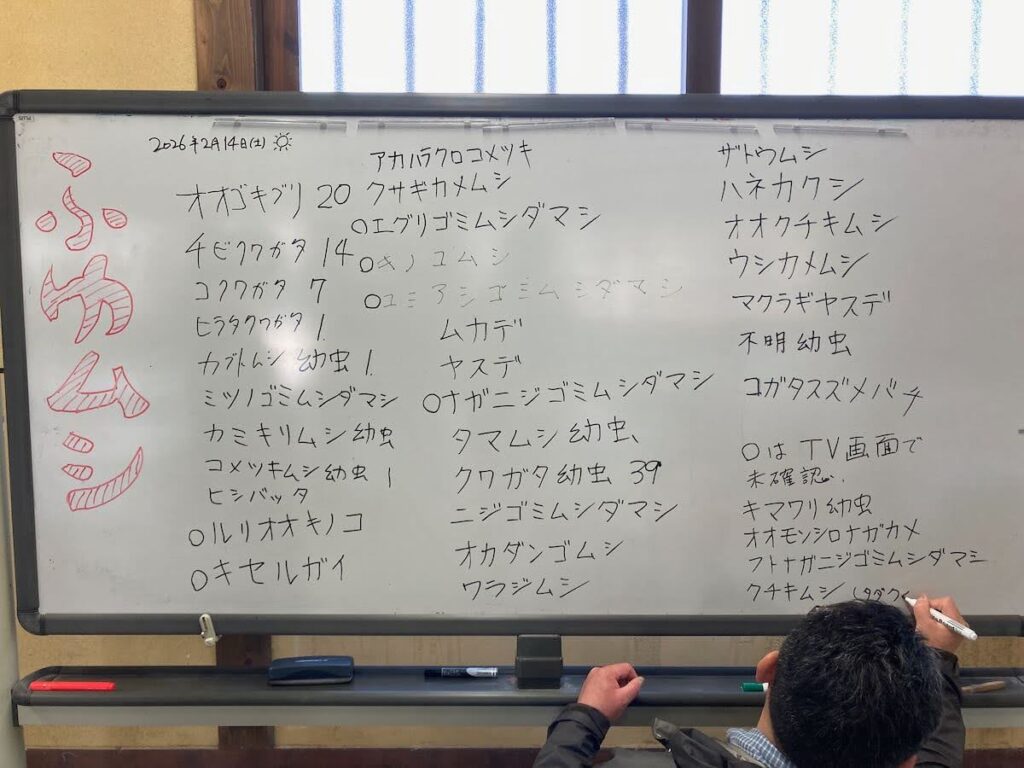 ふカムシ
2026年2月14日(土)
オオゴキブリ 20
チビクワガタ 14
コクワガタ 7
ヒラタクワガタ 1
カブトムシ 幼虫 1
ミツノゴミムシダマシ
カミキリムシ幼虫
コメツキムシ幼虫 1
ヒシバッタ
○ルリオオキノコ
○キセルガイ
アカハラクロコメツキ
クサギカメムシ
○エグリゴミムシダマシ
○キノコムシ
○ユミアシゴミムシダマシ
ムカデ
ヤスデ
○ナガニジゴミムシダマシ
タマムシ幼虫
クワガタ幼虫 39
ニジゴミムシダマシ
オカダンゴムシ
ワラジムシ
ザトウムシ
ハネカクシ
オオクチキムシ
ウシカメムシ
マクラギヤスデ
不明幼虫
コガタスズメバチ
○はTV画面で
未確認.
キマワリ幼虫
オオモンシロナガカメ
フトナガニジゴミムシダマシ
クチキムシ